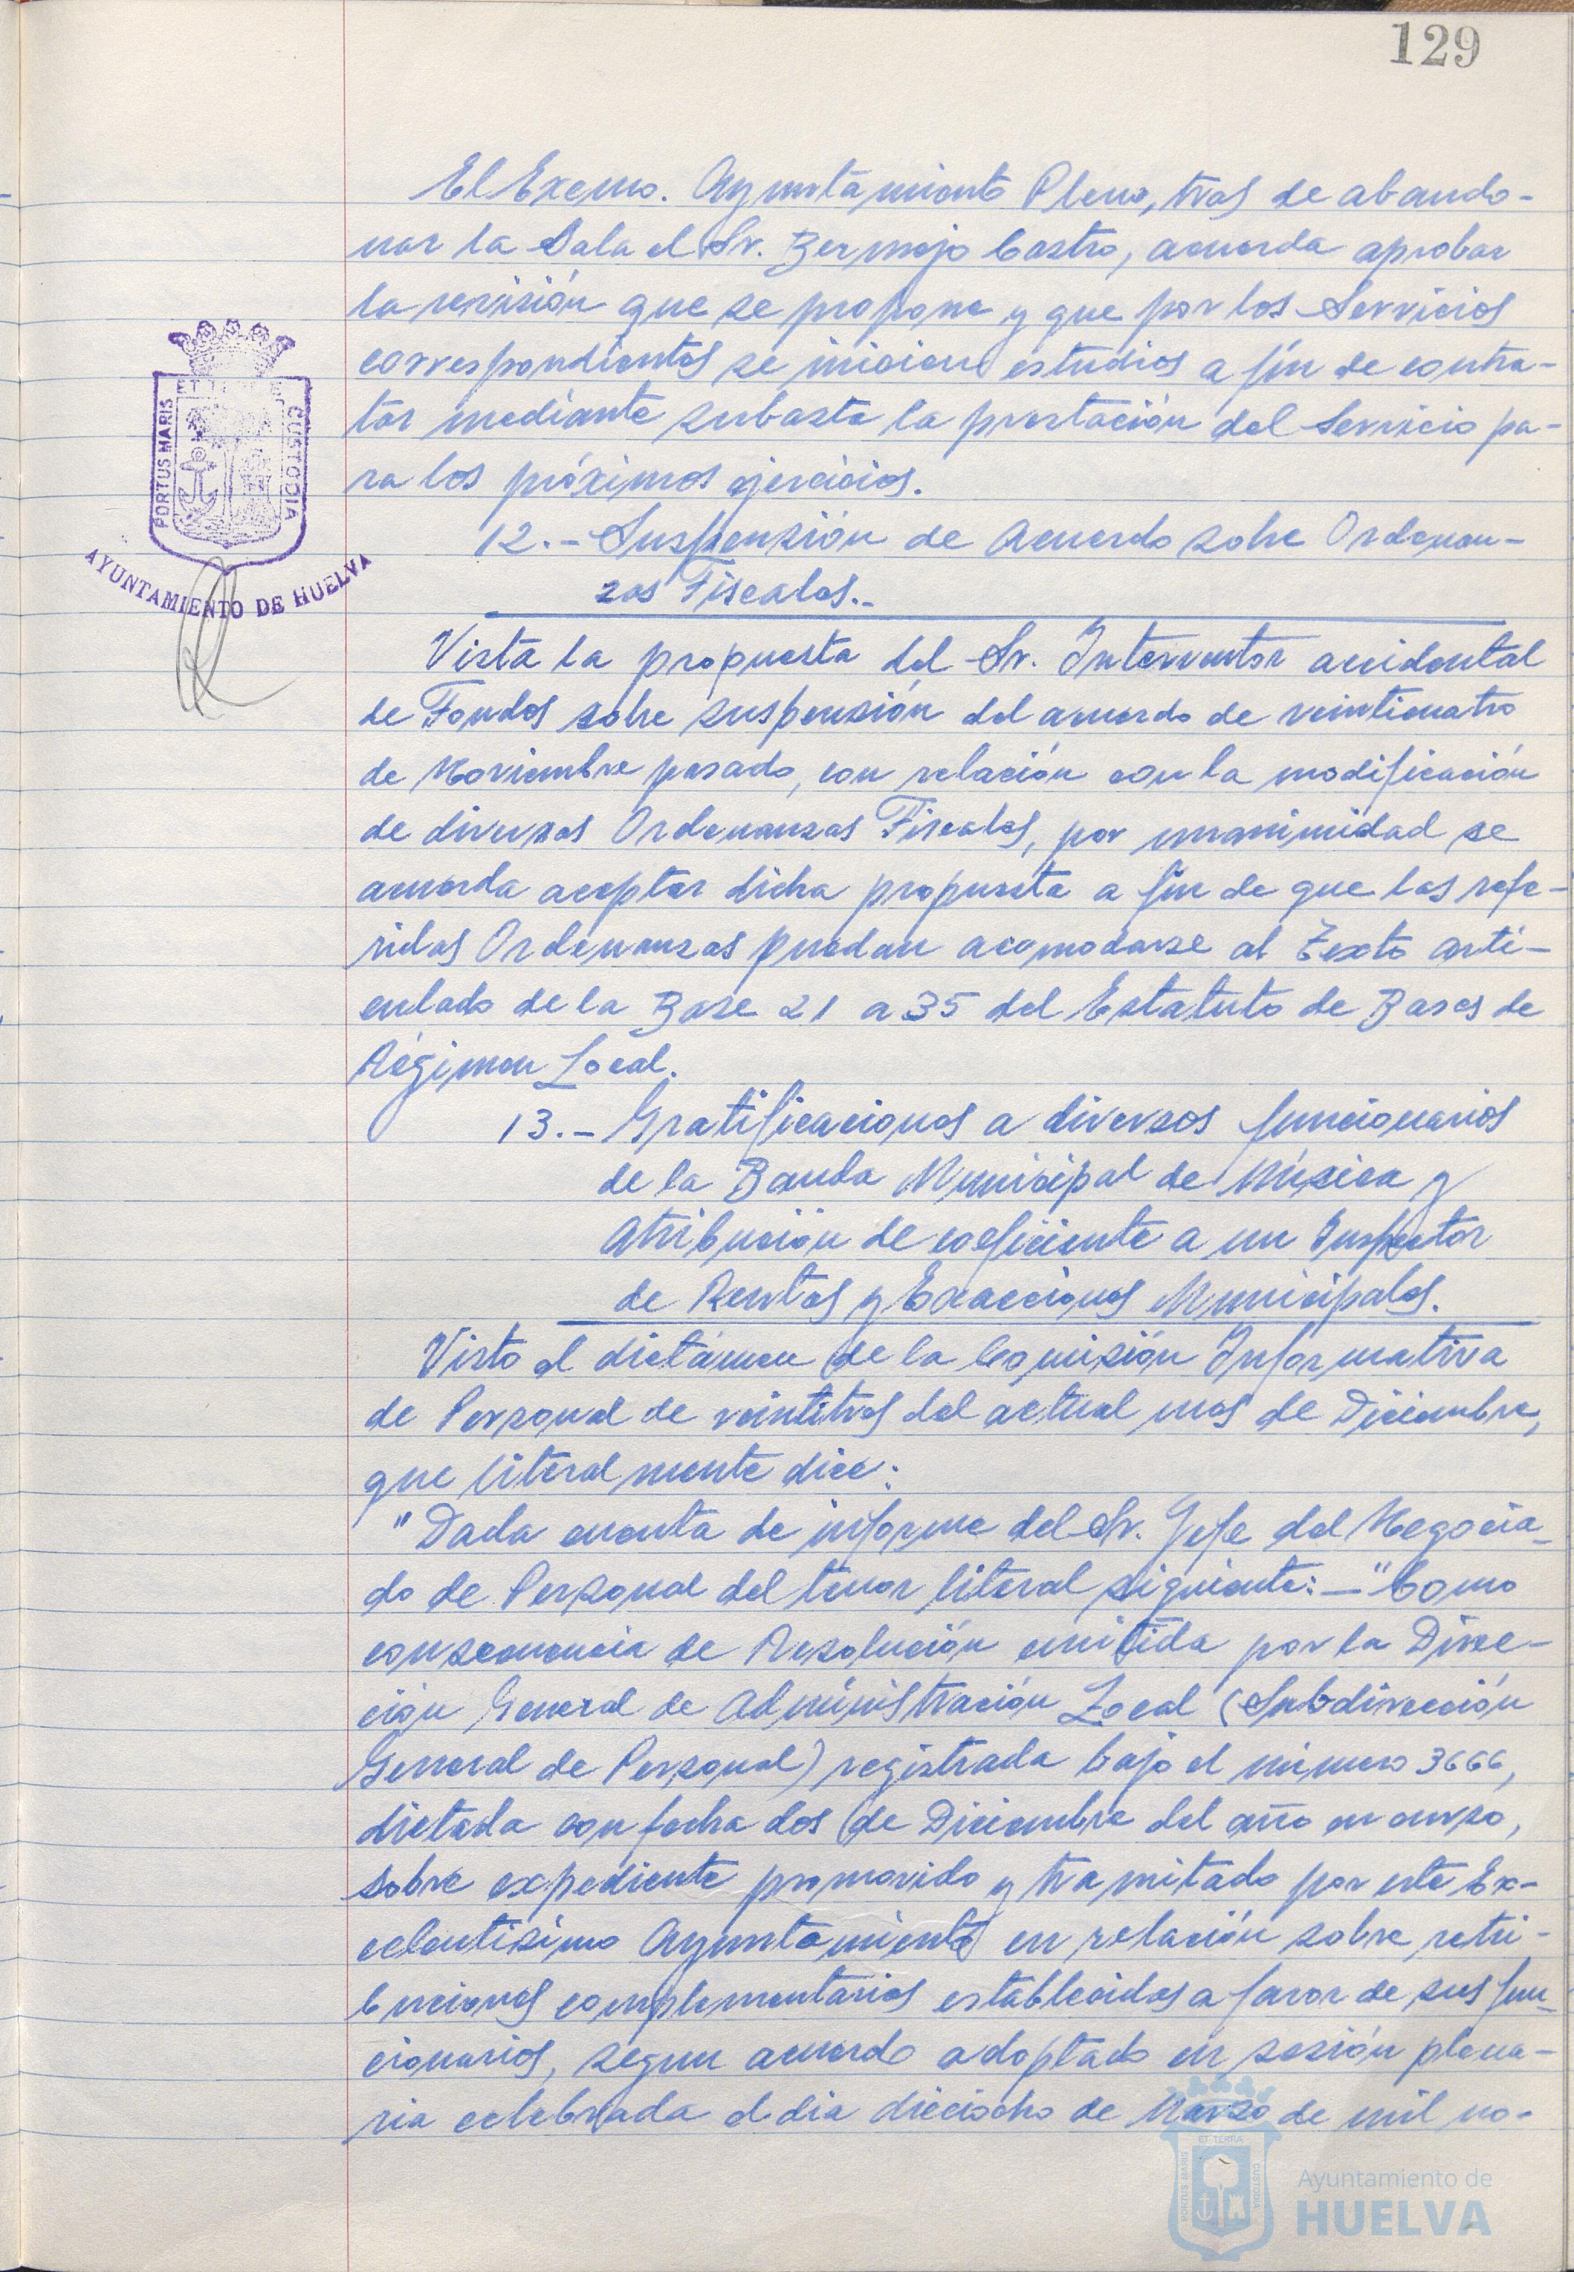 129
El Excmo. Ayuntamiento Pleno, tras de abando-
nar la Sala el Sr. Bermejo Castro, acuerda aprobar
la revisión que se propone y que por los Servicios
correspondientes se inicien estudios a fin de contra-
tar mediante subasta la prestación del Servicio pa-
ra los próximos ejercicios.
12.- Suspensión de Acuerdo sobre Ordenan-
zas Fiscales.-
Vista la propuesta del Sr. Interventor accidental
de Fondos sobre suspensión del acuerdo de veinticuatro
de Noviembre pasado, con relación con la modificación
de diversas Ordenanzas Fiscales, por unanimidad se
acuerda aceptar dicha propuesta a fin de que las refe-
ridas Ordenanzas puedan acomodarse al Texto arti-
culado de la Base 21 a 35 del Estatuto de Bases de
Régimen Local.
13.- Gratificaciones a diversos funcionarios
de la Banda Municipal de Música y
Atribución de coeficiente a un Inspector
de Rentas y Exacciones Municipales.
Visto el dictámen de la Comisión Informativa
de Personal de veintitres del actual mes de Diciembre,
que literalmente dice:
"Dada cuenta de informe del Sr. Jefe del Negocia-
do de Personal del tenor literal siguiente:-"Como
consecuencia de Resolución emitida por la Direc-
ción General de Administración Local (Subdirección
General de Personal) registrada bajo el número 3666,
dictada con fecha dos de Diciembre del año en curso,
sobre expediente promovido y tramitado por este Ex-
celentísimo Ayuntamiento en relación sobre retri-
buciones complementarias establecidas a favor de sus fun-
cionarios, segun acuerdo adoptado en sesión plena-
ria celebrada el dia dieciocho de Marzo de mil no-
PORTUS MARIS
ET TERRE
CUSTODIA
AYUNTAMIENTO DE HUELVA
PORTUS MARIS
ET TERRA
CUSTODIA
Ayuntamiento de
HUELVA